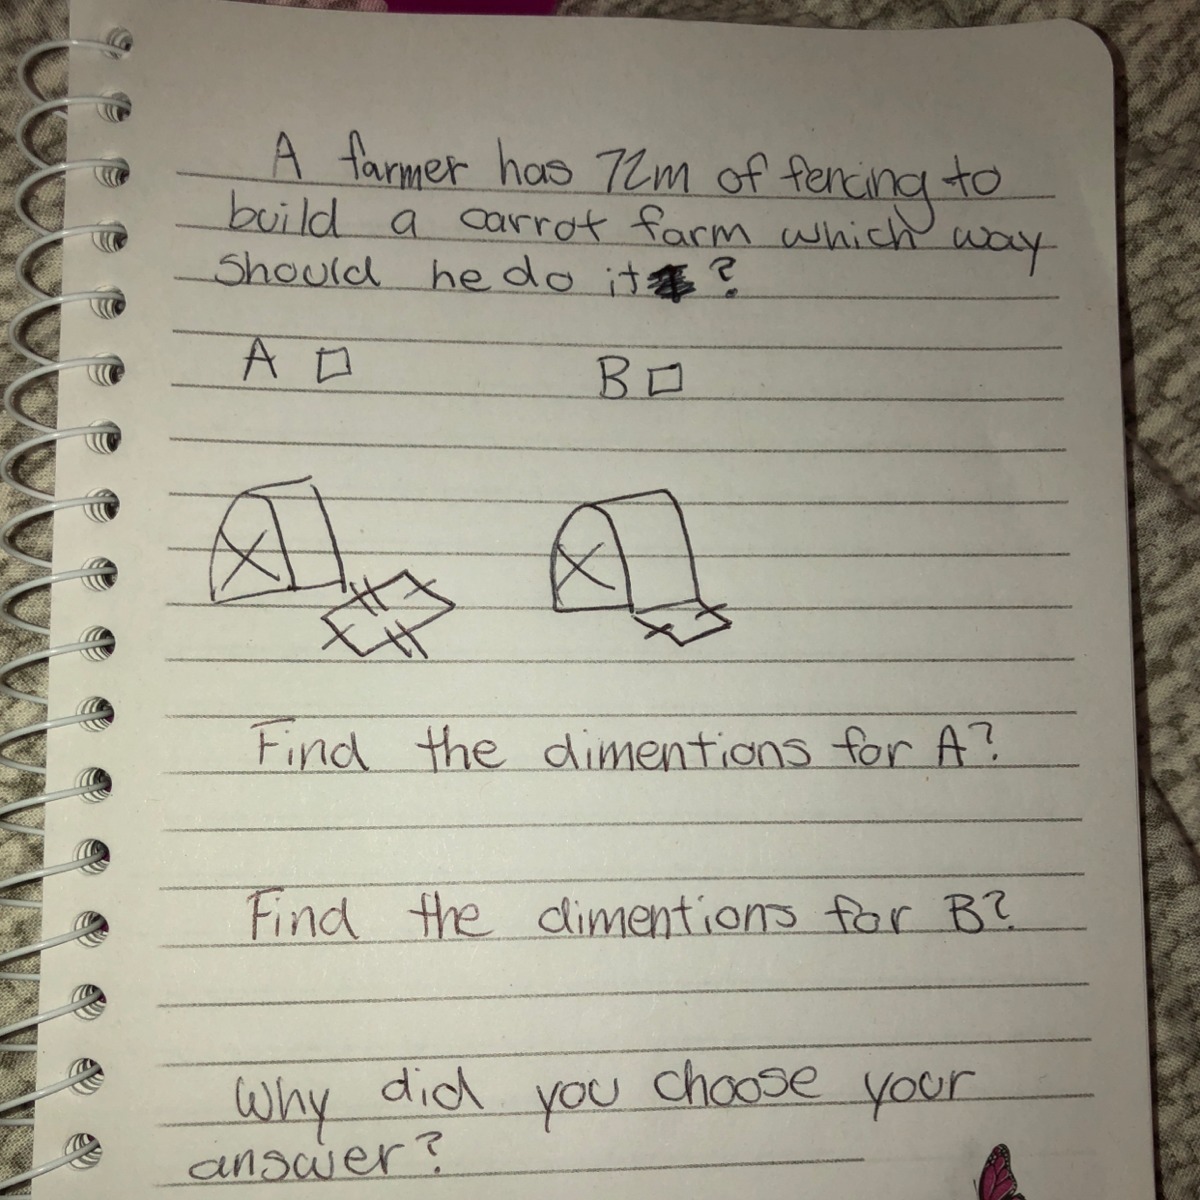 A farmer has 72m of fencing to
build a carrot farm which way
should he do it ?
A B
Find the dimentions for A?
Find the dimentions for B?
Why did you choose your
answer?